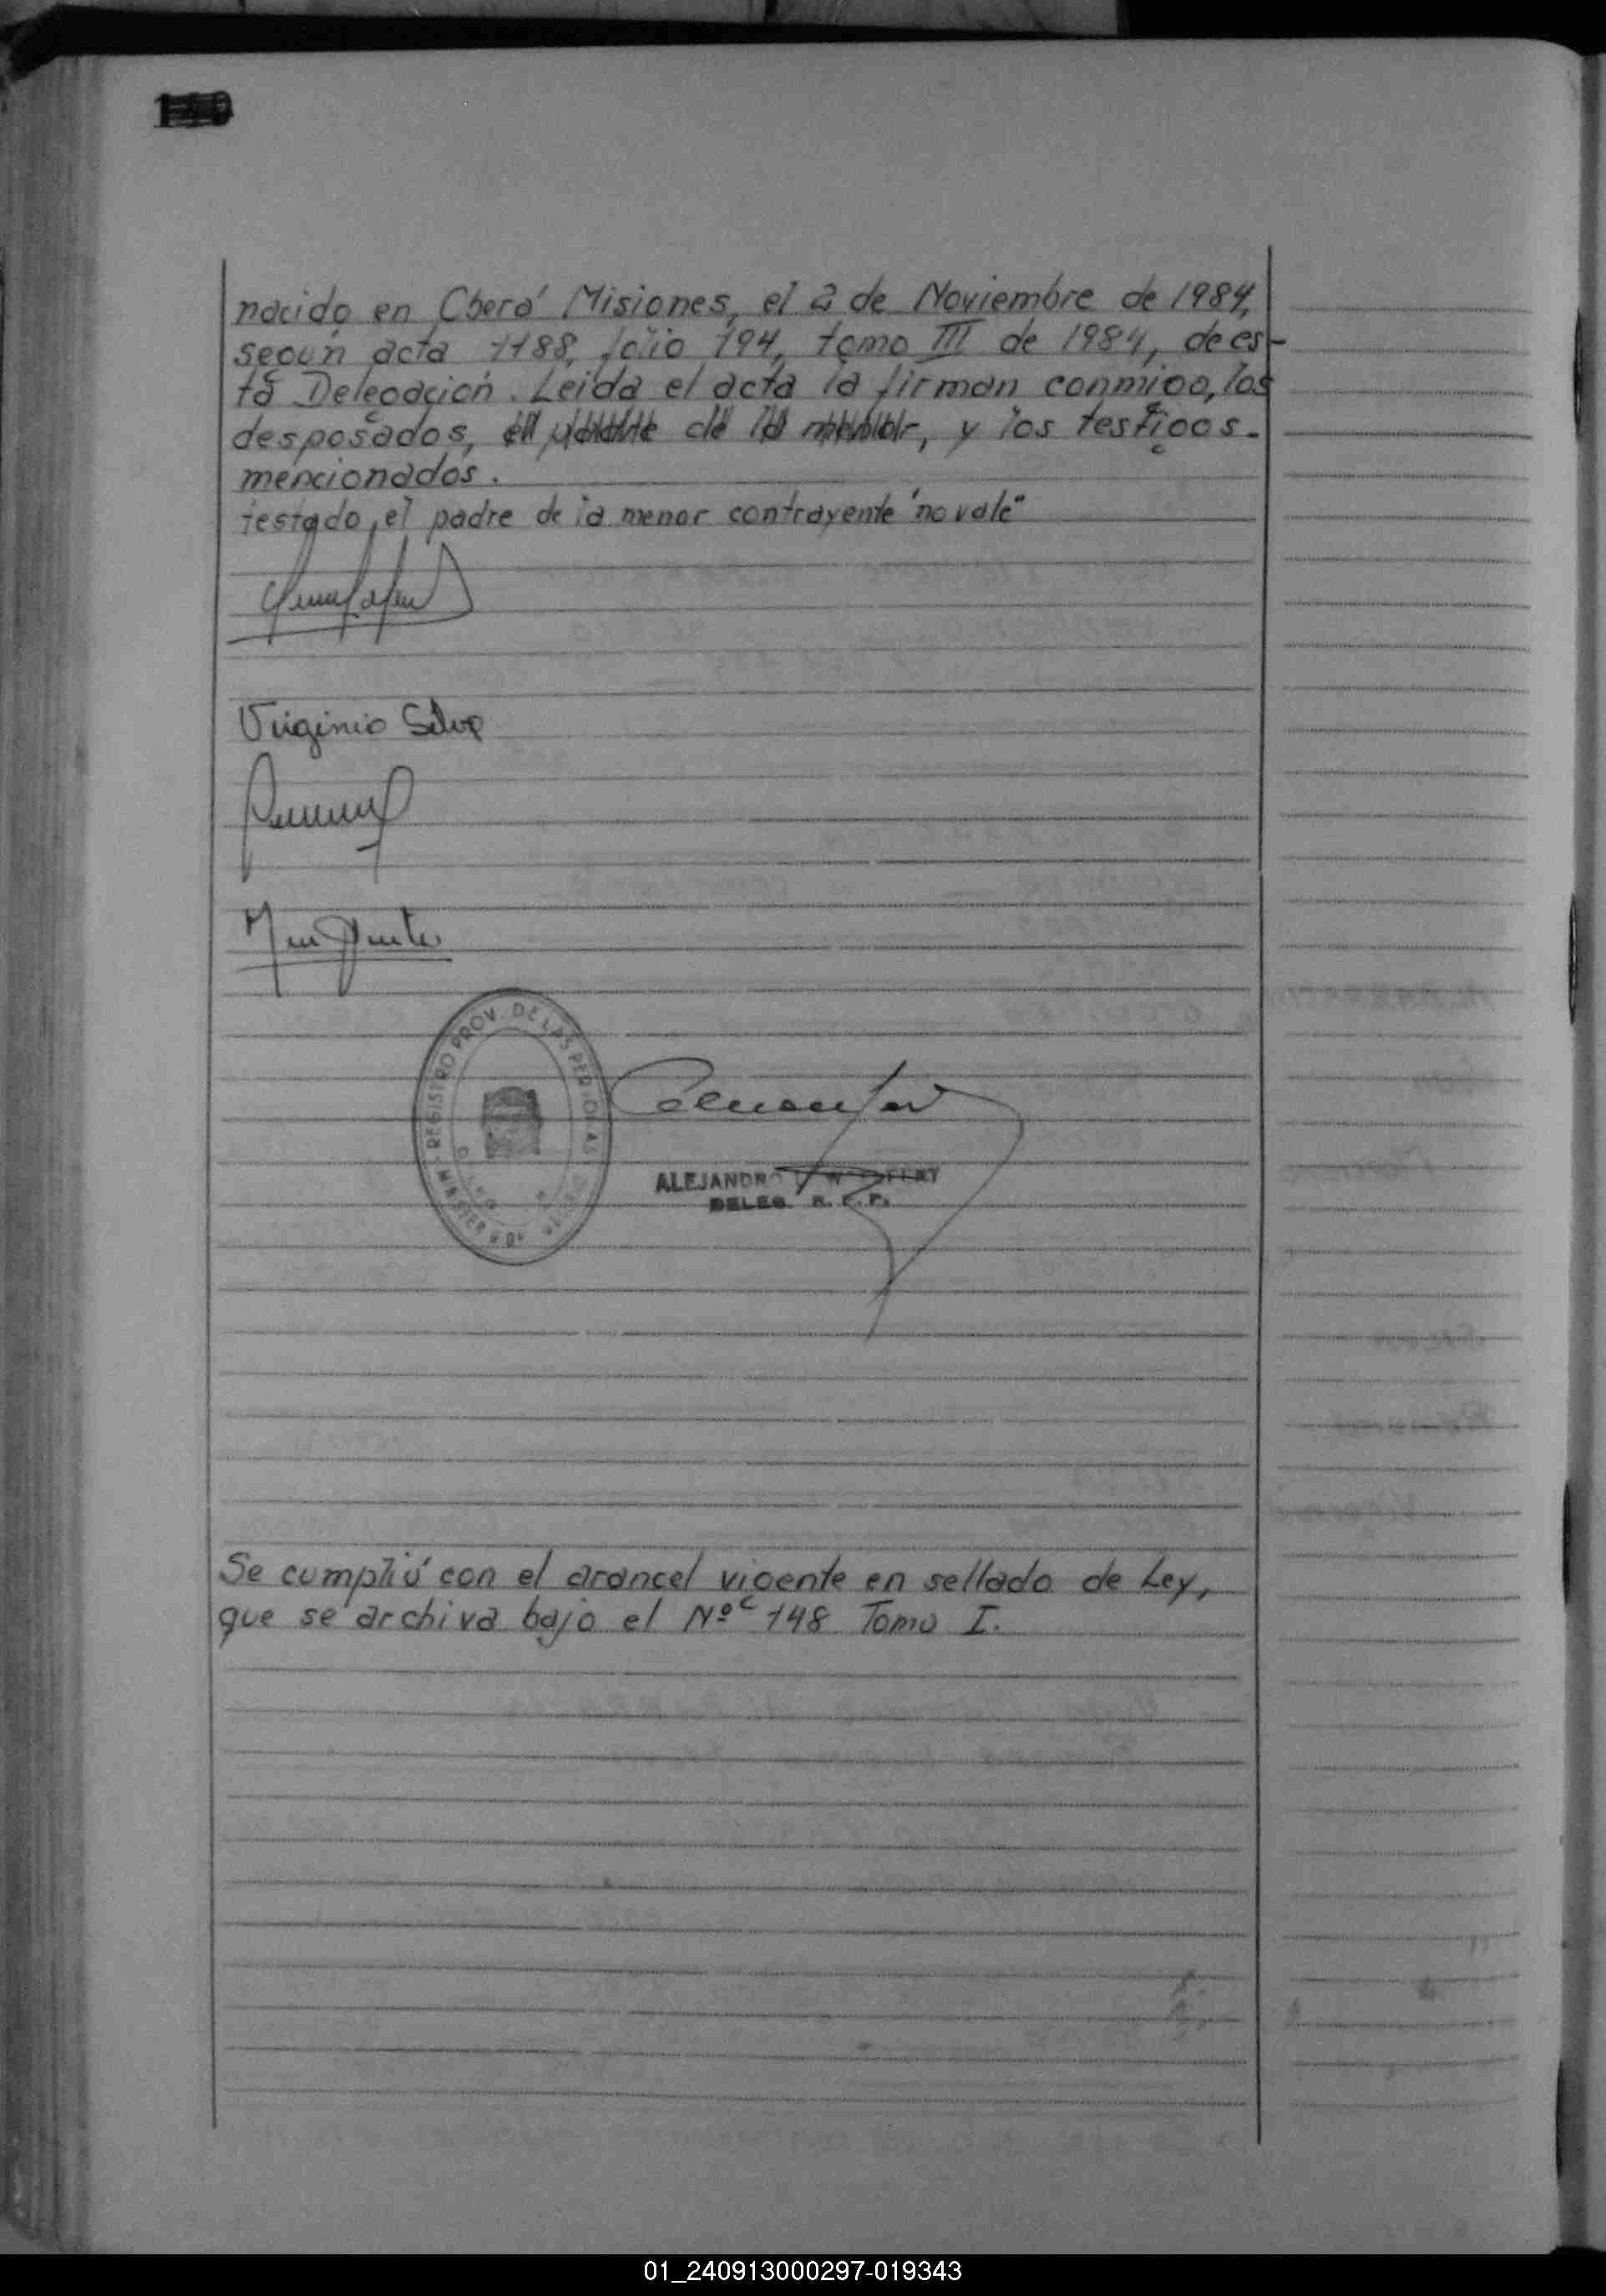 nacido en Oberá Misiones, el 2 de Noviembre de 1984,
según acta 1188, folio 194, tomo III de 1984, de es-
ta Delegación. Leida el acta la firman conmigo, los
desposados, el padre de la menor, y los testigos.
mencionados.
Testado, el padre de la menor contrayente "no vale"
Virginio Silva
REGISTRO PROV. DE LAS PERSONAS
ALEJANDRO
DELEG. R. P.
Se cumplió con el arancel vigente en sellado de Ley,
que se archiva bajo el Nº 148 Tomo I.
01_240913000297-019343